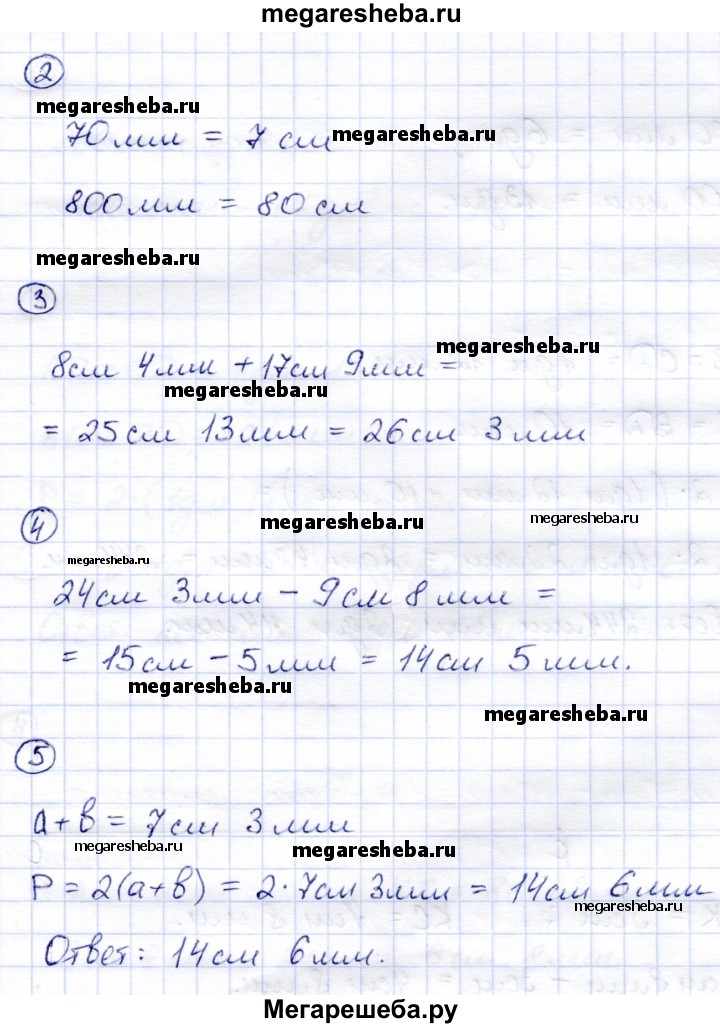 megaresheba.ru
2
megaresheba.ru
70мм = 7 см megaresheba.ru
800мм = 80см
megaresheba.ru
3
megaresheba.ru
8см 4мм + 17см 9мм =
megaresheba.ru
= 25см 13мм = 26см 3мм
4
megaresheba.ru megaresheba.ru
megaresheba.ru
24см 3мм - 9см 8мм =
= 15см - 5мм = 14см 5мм.
megaresheba.ru
megaresheba.ru
5
a+b = 7см 3мм
megaresheba.ru megaresheba.ru
P = 2(a+b) = 2·7см 3мм = 14см 6мм
megaresheba.ru
Ответ: 14см 6мм.
Мегарешеба.ру